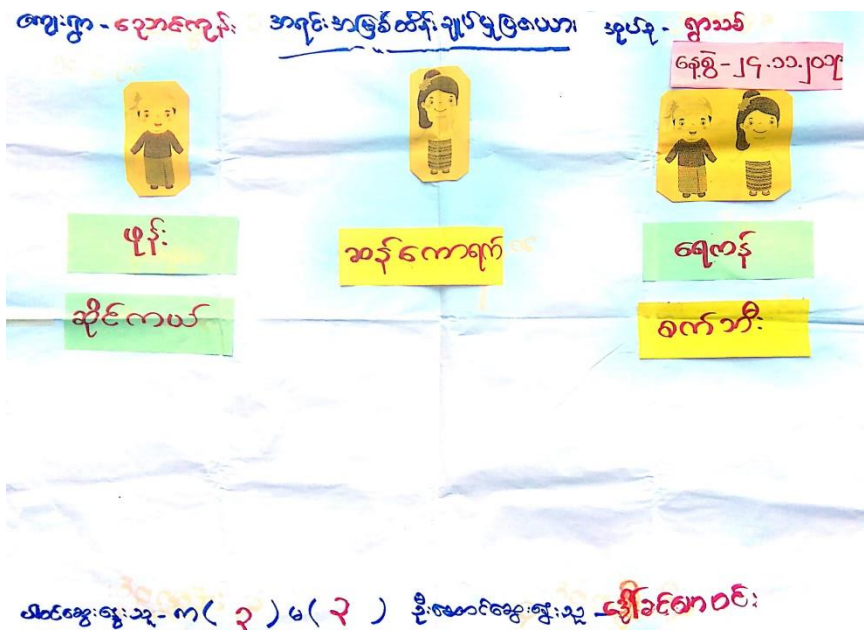 ကျေးရွာ - ဒေုဘင်ကျွန်း အရင်းအမြစ်ထိန်းချုပ်မှုပြဇယား အုပ်စု - ရွာသစ်
နေ့စွဲ - ၂၄.၁၁.၂၀၁၉
ဖုန်း
ဆန်ကောရက်
ရေကန်
ဆိုင်ကယ်
စက်ဘီး
ပါဝင်ဆွေးနွေးသူ - က ( ၃ ) မ ( ၃ ) ဦးဆောင်ဆွေးနွေးသူ - ဒေါ်ခင်မာဝင်း